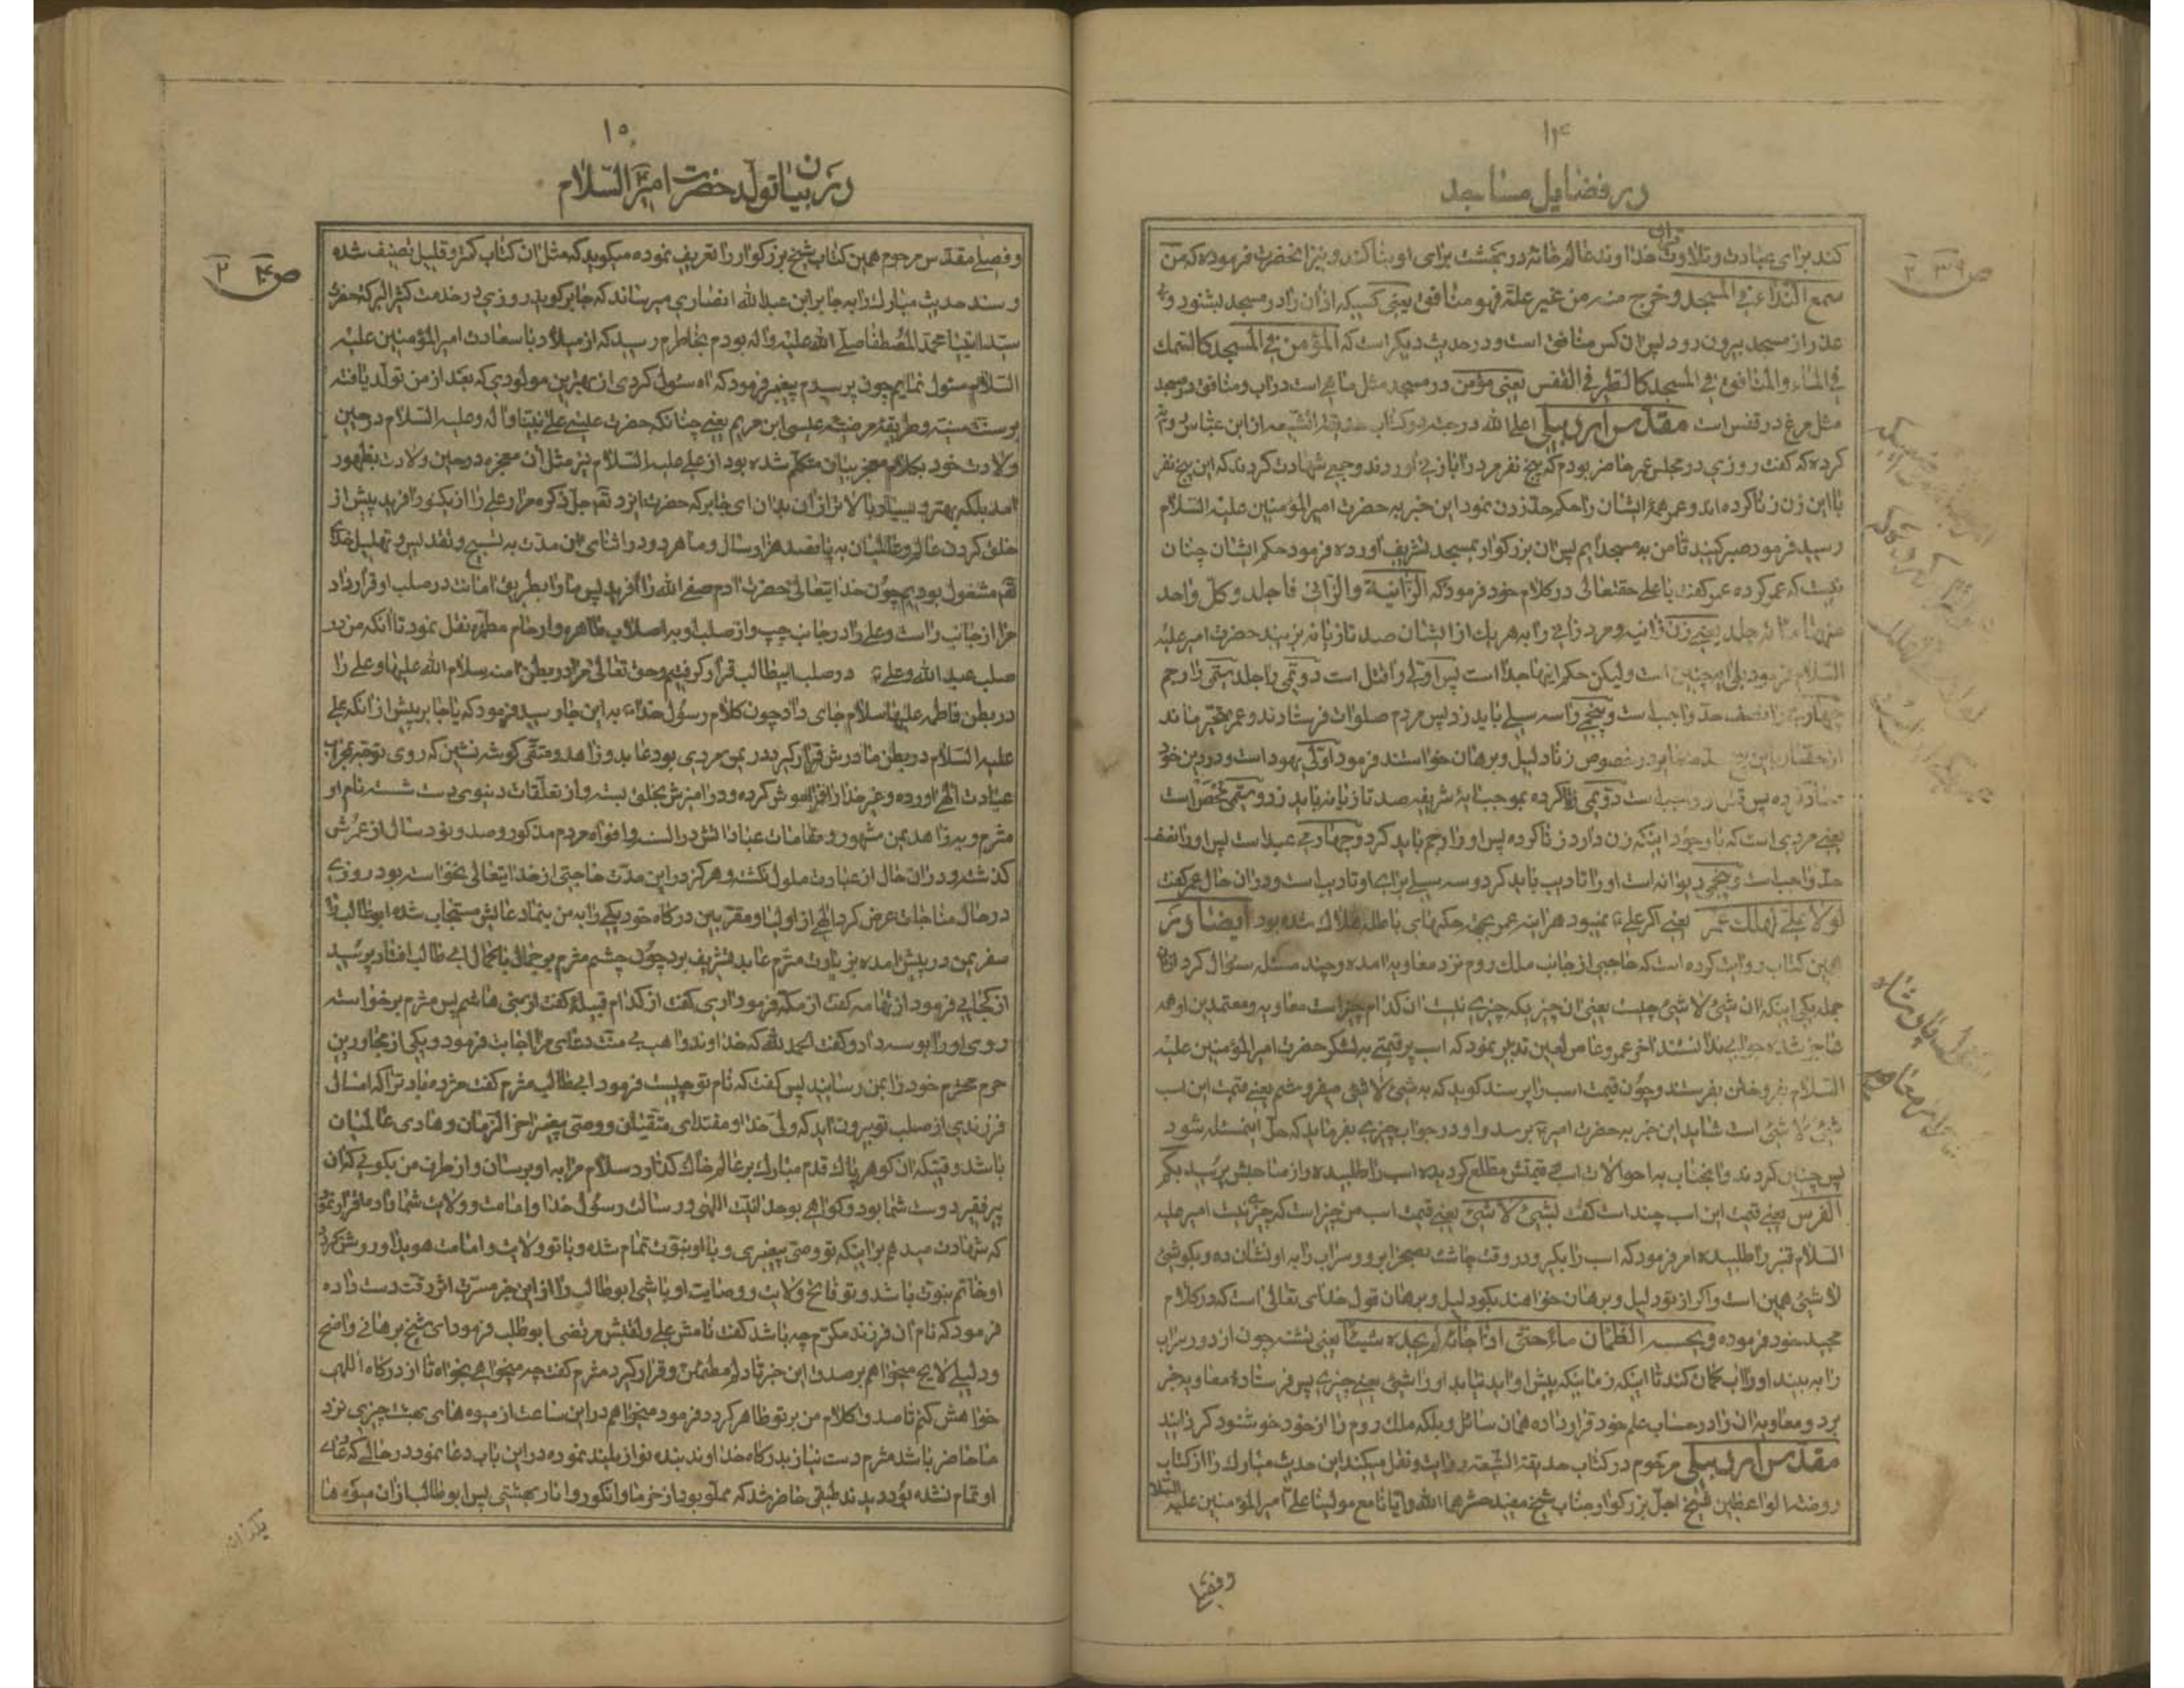 ۱۴
در فضایل مساجد
کند برای عبادت و تلاوت قران خداوند عالم خانه در بهشت برای او بنا کند و نیز انحضرت فرموده که من
سمع النداء فی المسجد و خرج منه من غیر علة فهو منافق یعنی کسیکه اذان را در مسجد بشنود و بی
عذر از مسجد بیرون رود پس ان کس منافق است و در حدیث دیکر است که المؤمن فی المسجد کالسمک
فی الماء و المنافق فی المسجد کالطیر فی القفس یعنی مؤمن در مسجد مثل ماهی است در اب و منافق در مسجد
مثل مرغ در قفس است مقدس اردبیلی اعلی الله درجته در کتاب حدیقة الشیعه از ابن عباس روایت
کرده که کفت روزی در مجلس عمر حاضر بودم که پنج نفر مرد را با زنی اوردند و جمعی شهادت کردند که این پنج نفر
با این زن زنا کرده اند و عمر همۀ ایشان را حکم حد زدن نمود این خبر به حضرت امیر المؤمنین علیه السلام
رسید فرمود صبر کنید تا من به مسجد ایم پس ان بزرکوار بمسجد تشریف اورده فرمود حکم ایشان چنان
نیست که عمر کرده عمر کفت یا علی حقتعالی در کلام خود فرمود که الزانیة و الزانی فاجلدو کل واحد
منهما مائه جلد یعنی زن زانیه و مرد زانی را به هر یک از ایشان صد تازیانه بزنید حضرت امیر علیه
السلام فرمود بلی همچنین است ولیکن حکم اینها جدا است پس اولی را قتل است دویمی را جلد سیمی را رجم
چهارمی را نصف حد واجب است و پنجمی را سه سیلی باید زد پس مردم صلوات فرستادند و عمر متحیر ماند
در خصوص زنا دلیل و برهان خواستند فرمود اولی یهود است و در دین خود
پس قتل او واجب است دویمی زنا کرده بموجب ایۀ شریفه صد تازیانه باید زد و سیمی محصن است
یعنی مردی است که با وجود اینکه زن دارد زنا کرده پس او را رجم باید کرد و چهارمی عبد است پس او را نصف
حد واجب است و پنجمی دیوانه است او را تادیب باید کرد و سه سیلی برای او تادیب است و در ان حال عمر کفت
لولا علی لهلک عمر یعنی اکر علی ع نمیبود هر اینه عمر بجهة حکمهای باطله هلاک شده بود ایضا در
همین کتاب روایت کرده است که حاجبی از جانب ملک روم نزد معاویه امده و چند مسئله سئوال کرد از ان
جمله یکی اینکه ان شیئ لا شیئ چیست یعنی ان چیزیکه چیزی نیست ان کدام چیز است معاویه و معتمدین او همه
عاجز شده جوابی ندانستند اخر عمرو عاص لعین تدبیر نمود که اسب پر قیمتی به لشکر حضرت امیر المؤمنین علیه
السلام بفروختن بفرستند و چون قیمت اسب را پرسند کوید که به شیئ لا شیئ میفروشم یعنی قیمت این اسب
شیئ لا شیئ است شاید این خبر به حضرت امیر ع برسد و او در جواب چیزی بفرماید که حل اینمسئله شود
پس چنان کردند و انجناب به احوالات اسب قیمتش مطلع کردیده اسب را طلبیده و از صاحبش پرسید بکم
الفرس یعنی قیمت این اسب چند است کفت لشیئ لا شیئ یعنی قیمت اسب من چیز است که چیزی نیست امیر علیه
السلام قنبر را طلبیده امر فرمود که اسب را بکیر و در وقت چاشت بصحرا برو و سراب را به او نشان ده و بکو شیئ
لا شیئ همین است و اکر از تو دلیل و برهان خواهند بکو دلیل و برهان قول خدای تعالی است که در کلام
مجید خود فرموده و یحسبه الظمان ماء حتی اذا جائه لم یجده شیئا یعنی تشنه چون از دور سراب
را به بیند او را اب کمان کند تا اینکه زمانیکه پیش او اید نیابد او را شیئ یعنی چیزی پس فرستادۀ معاویه خبر
برد و معاویه ان را در حساب علم خود قرار داده همان سائل و بلکه ملک روم را از خود خوشنود کردانید
مقدس اردبیلی مرحوم در کتاب حدیقة الشیعه روایت و نقل میکند این حدیث مبارک را از کتاب
روضة الواعظین شیخ اجل بزرکوار جناب شیخ مفید حشرهما الله و ایانا مع مولینا علی امیر المؤمنین علیه السلام
و فصلی
۱۵
در بیان تولد حضرت امیر علیه السلام
و فصلی مقدس مرحوم همین کتاب شیخ بزرکوار را تعریف نموده میکوید که مثل ان کتاب کمتر و قلیل تصنیف شده
و سند حدیث مبارک را به جابر ابن عبد الله انصاری میرساند که جابر کوید روزی در خدمت کثیر البرکة حضرت
سید انبیا محمد المصطفا صلی الله علیه و اله بودم بخاطرم رسید که از میلاد با سعادت امیر المؤمنین علیه
السلام سئول نمایم چون پرسیدم پیغمبر فرمود که اه سئول کردی از بهترین مولودی که بعد از من تولد یافته
بر سنت سنیه و طریقۀ مرضیه عیسی ابن مریم یعنی چنانکه حضرت عیسی علی نبینا و اله و علیه السلام در حین
ولادت خود بکلام معجز بیان متکلم شده بود از علی علیه السلام نیز مثل ان معجزه در حین ولادت بظهور
امد بلکه بهتر و بسیار بالاتر از ان بدان ای جابر که حضرت ایزد تقم جل ذکره مرا و علی را از یک نور افرید پیش از
خلق کردن عالم و عالمیان به پانصد هزار سال و ما هر دو در اثنای این مدت به تسبیح و تقدیس و تهلیل خدای
تقم مشغول بودیم چون خدایتعالی حضرت ادم صفی الله را افرید پس ما را بطریق امانت در صلب او قرار داد
مرا از جانب راست و علی را در جانب چپ و از صلب او به اصلاب طاهره و ارحام مطهره نقل نمود تا انکه من در
صلب عبد الله و علی ع در صلب ابیطالب قرار کرفتیم و حق تعالی مرا در بطن امنه سلام الله علیها و علی را
در بطن فاطمه علیها سلام جای داد چون کلام رسول خدا ص به این جا رسید فرمود که یا جابر پیش از انکه علی
علیه السلام در بطن مادرش قرار کیرد در یمن مردی بود عابد و زاهد و متقی کوشه نشین که روی توجه بمحراب
عبادت الهی اورده و غیر خدا را فراموش کرده و در امیزش بخلق بسته و از تعلقات دنیوی دست شسته نام او
مثرم و به زاهد یمن مشهور و مقامات عباداتش در السنه و افواه مردم مذکور و صد و نود سال از عمرش
کذشته و در ان حال از عبادت ملول نکشته و هرکز در این مدت حاجتی از خدایتعالی نخواسته بود روزی
در حال مناجات عرض کرد الهی از اولیا و مقربین درکاه خود یکی را به من بنما دعایش مستجاب شده ابو طالب را
سفر یمن در پیش امده بزیارت مثرم عابد تشریف برد چون چشم مثرم بر جمال با کمال ابی طالب افتاد پرسید
از کجایی فرمود از تهامه کفت از مکه فرمود اری کفت از کدام قبیله کفت از بنی هاشم پس مثرم برخواسته
روی او را بوسه داد و کفت الحمد لله که خداوند واهب بی منت دعای مرا اجابت فرمود و یکی از مجاورین
حرم محترم خود را بمن رسانید پس کفت که نام تو چیست فرمود ابی طالب مثرم کفت مژده باد ترا که امسال
فرزندی از صلب تو بیرون اید که ولی خدا و مقتدای متقیان و وصی پیغمبر اخر الزمان و هادی عالمیان
باشد وقتیکه ان کوهر پاک قدم مبارک بر عالم خاک کذارد سلام مرا به او برسان و از طرف من بکو بی کران
پیر فقیر دوست شما بود و کواهی بوحدانیت اللهی و رسالت رسول خدا و امامت و ولایت شما داد
که شهادت میدهم بر اینکه تو وصی پیغمبری و با او نبوت تمام شده و با تو ولایت و امامت هویدا و روشن کردد
او خاتم نبوت باشد و تو فاتح ولایت و وصایت او باشی ابو طالب را از این خبر مسرت اثر رقت دست داده
فرمود که نام ان فرزند مکرم چه باشد کفت نامش علی و لقبش مرتضی ابو طلب فرمود ای شیخ برهانی واضح
و دلیلی لایح میخواهم بر صدق این خبر تا دلم مطمئن و قرار کیرد مثرم کفت چه میخواهی بخواه تا از درکاه اللهی
خواهش کنم تا صدق کلام من بر تو ظاهر کردد فرمود میخواهم در این ساعت از میوه های بهشت چیزی نزد
ما حاضر باشد مثرم دست نیاز بدرکاه خداوند بنده نواز بلند نموده در این باب دعا نمود در حالی که دعای
او تمام نشده بود دیدند طبقی حاضر شد که مملو بود از خرما و انکور و انار بهشتی پس ابو طالب از ان میوه ها